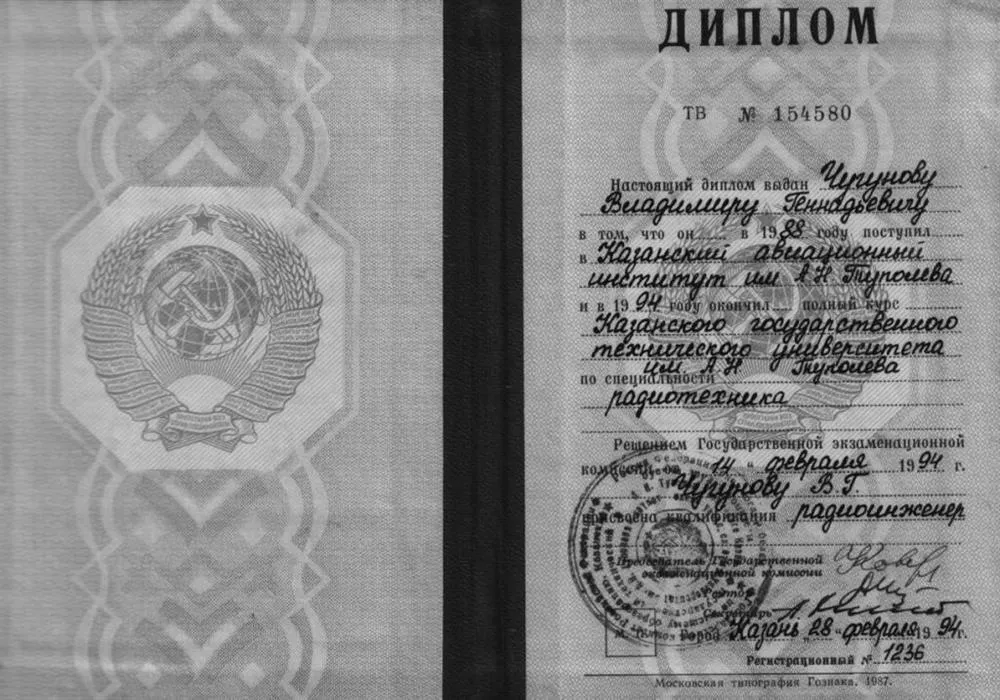 ДИПЛОМ
ТВ № 154580
Настоящий диплом выдан Чугунову
Владимиру Геннадьевичу
в том, что он в 1988 году поступил
в Казанский авиационный
институт им А Н Туполева
и в 1994 году окончил полный курс
Казанского государственного
технического университета
им. А. Н. Туполева
по специальности
радиотехника
Решением Государственной экзаменационной
комиссии от "14" февраля 1994 г.
Чугунову В. Г.
присвоена квалификация радиоинженер
Председатель Государственной
экзаменационной комиссии
Ректор
Секретарь
М. П. Город Казань 28 февраля 1994 г.
Регистрационный № 1236
Московская типография Гознака. 1987.